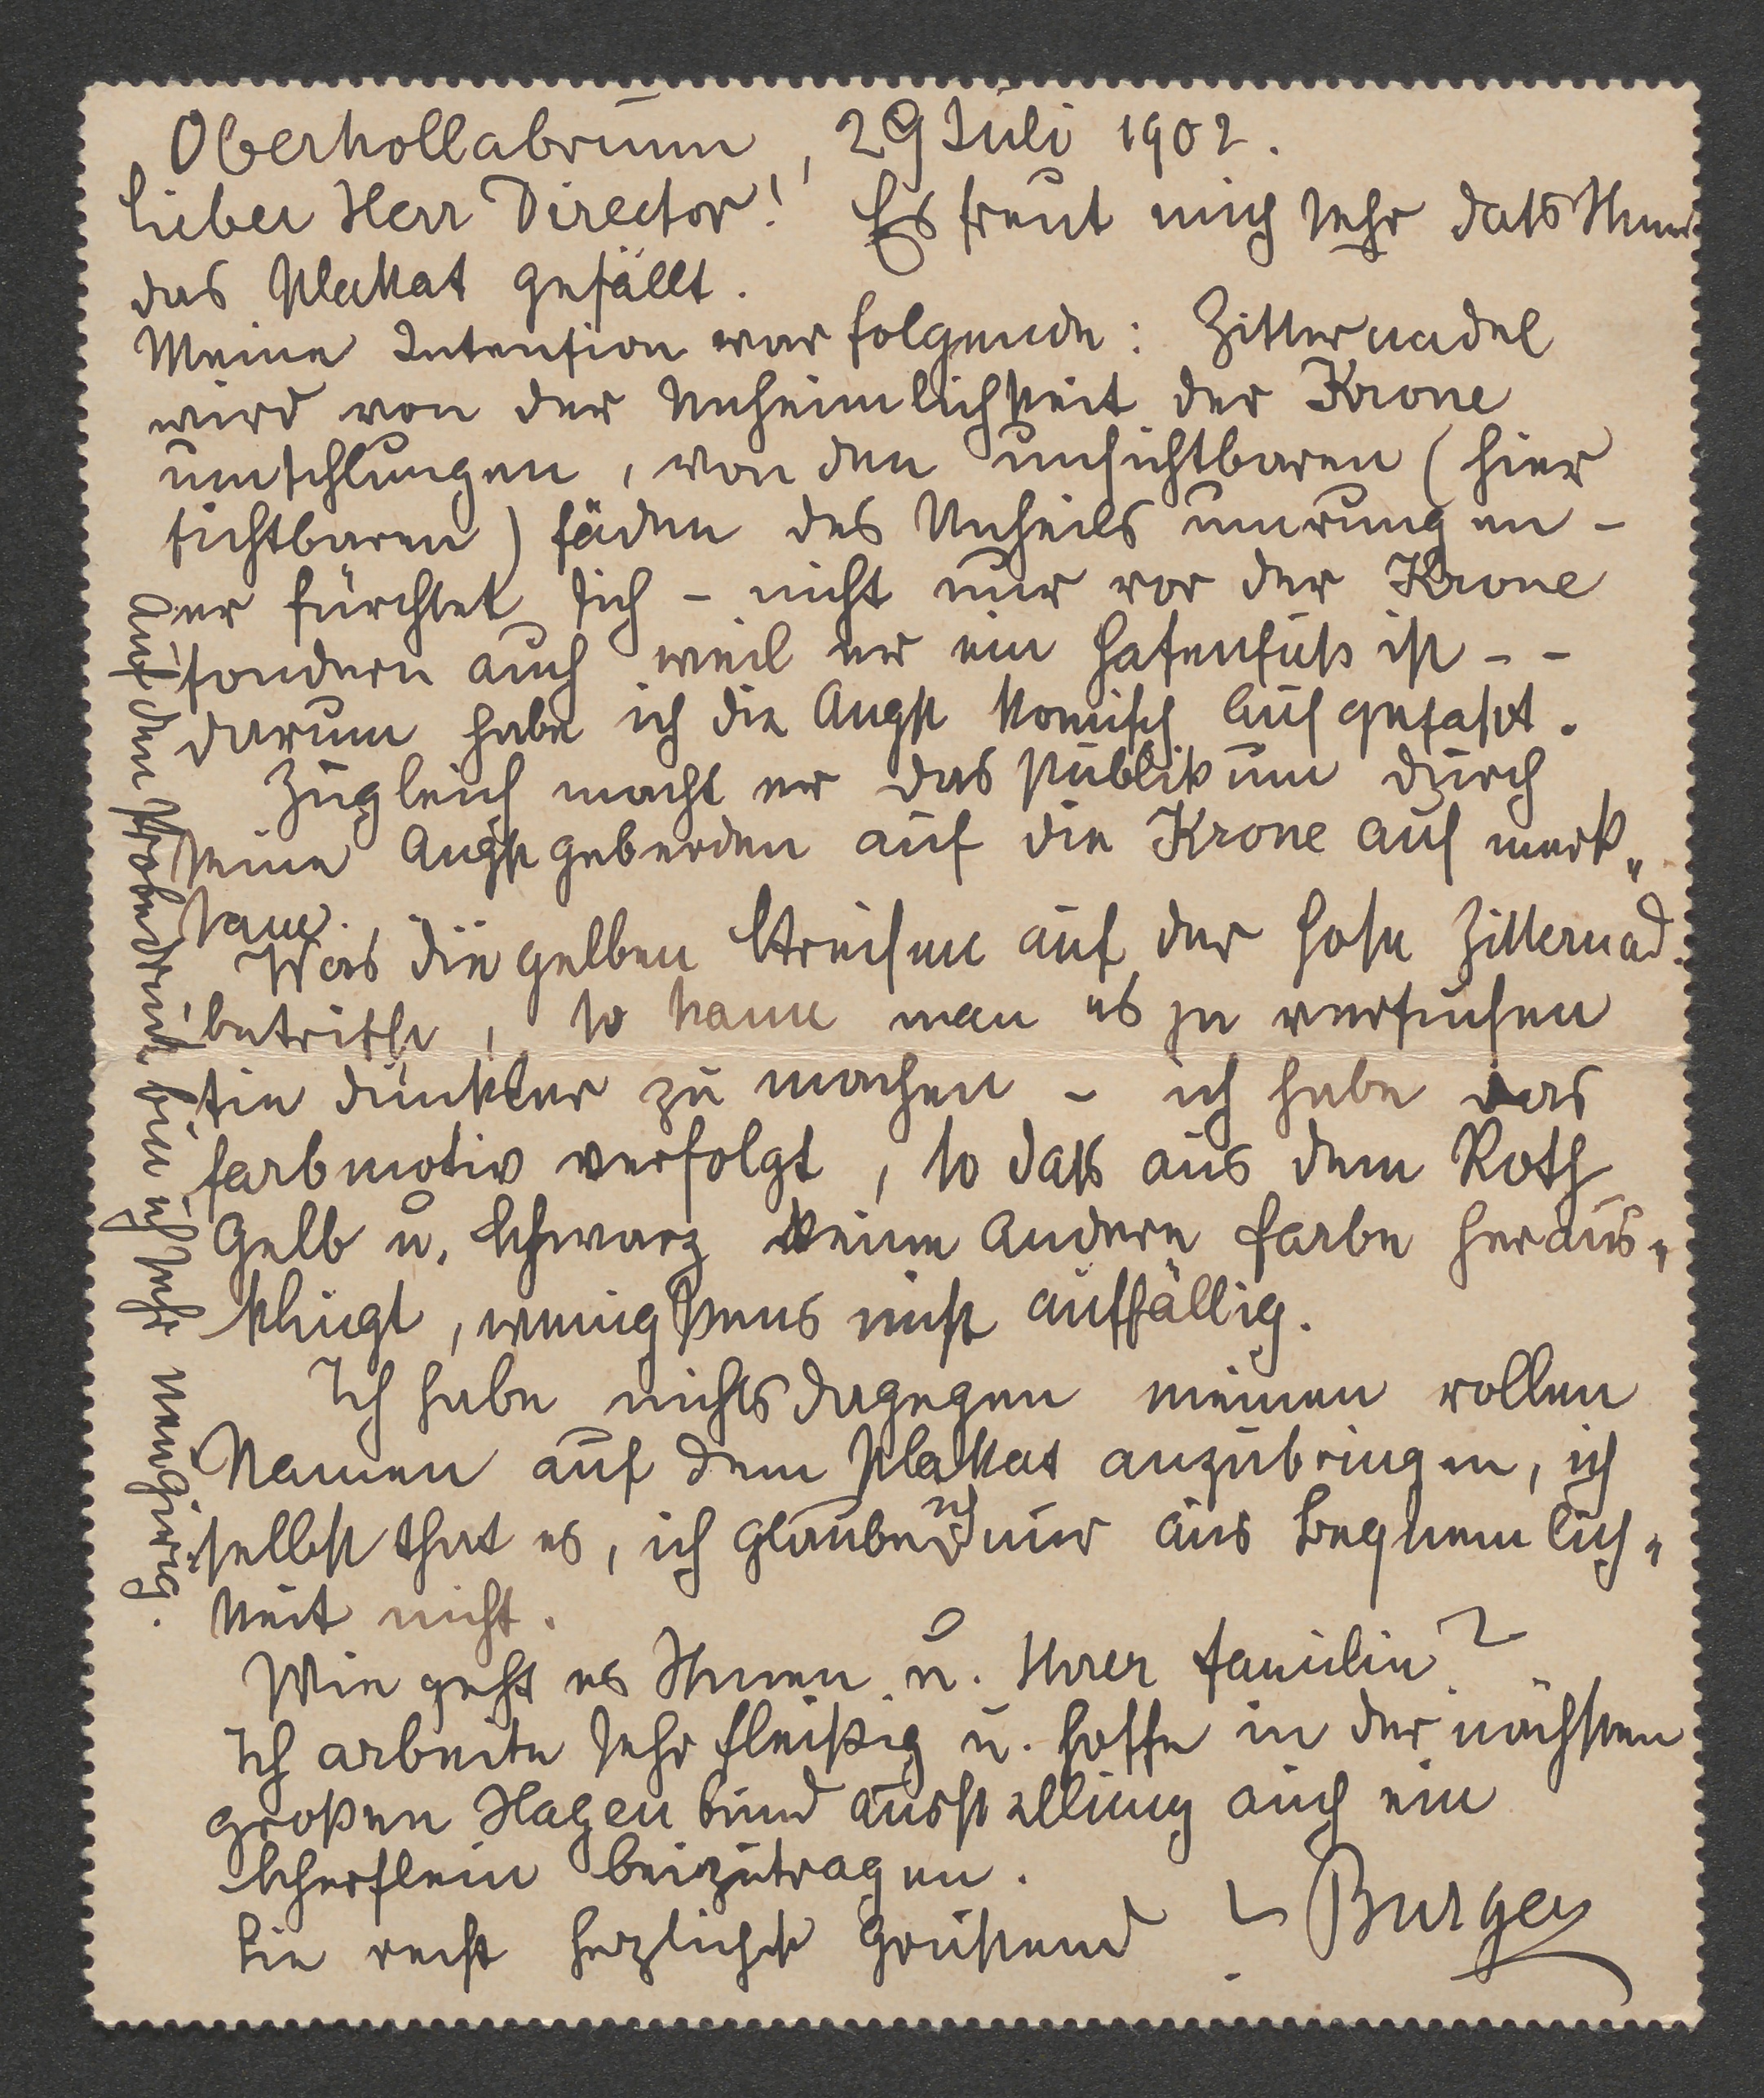 Oberhollabrunn, 29 Juli 1902.
Lieber Herr Director! Es freut mich sehr dass Ihnen
das Plakat gefällt.
Meine Intention war folgende: Zitternadel
wird von der Unheimlichkeit der Krone
umschlungen, von den unsichtbaren (hier
sichtbaren) Fäden des Unheils umrungen -
er fürchtet sich - nicht nur vor der Krone
sondern auch weil er ein Hasenfuß ist - -
darum habe ich die Angst komisch aufgefasst.
Zugleich macht er das Publikum durch
seine Angstgeberden auf die Krone aufmerk„
sam.
Was die gelben Streifen auf der Hose Zitternad.
betrifft, so kann man es zu versuchen
sie dunkler zu machen - ich habe das
Farbmotiv verfolgt, so dass aus dem Roth
Gelb u. Schwarz keine andere Farbe heraus„
klingt, wenigstens nicht auffällig.
Ich habe nichts dagegen meinen vollen
Namen auf dem Plakat anzubringen, ich
selbst that es, ich glaube nur aus Bequemlich„
keit nicht.
Wie geht es Ihnen u. Ihrer Familie?
Ich arbeite sehr fleißig u. hoffe in der nächsten
großen Hagenbund Ausstellung auch ein
Scherflein beizutragen.
Sie recht herzlichst Grüssend L Burger
Auf den Probedruck bin ich sehr neugierig.